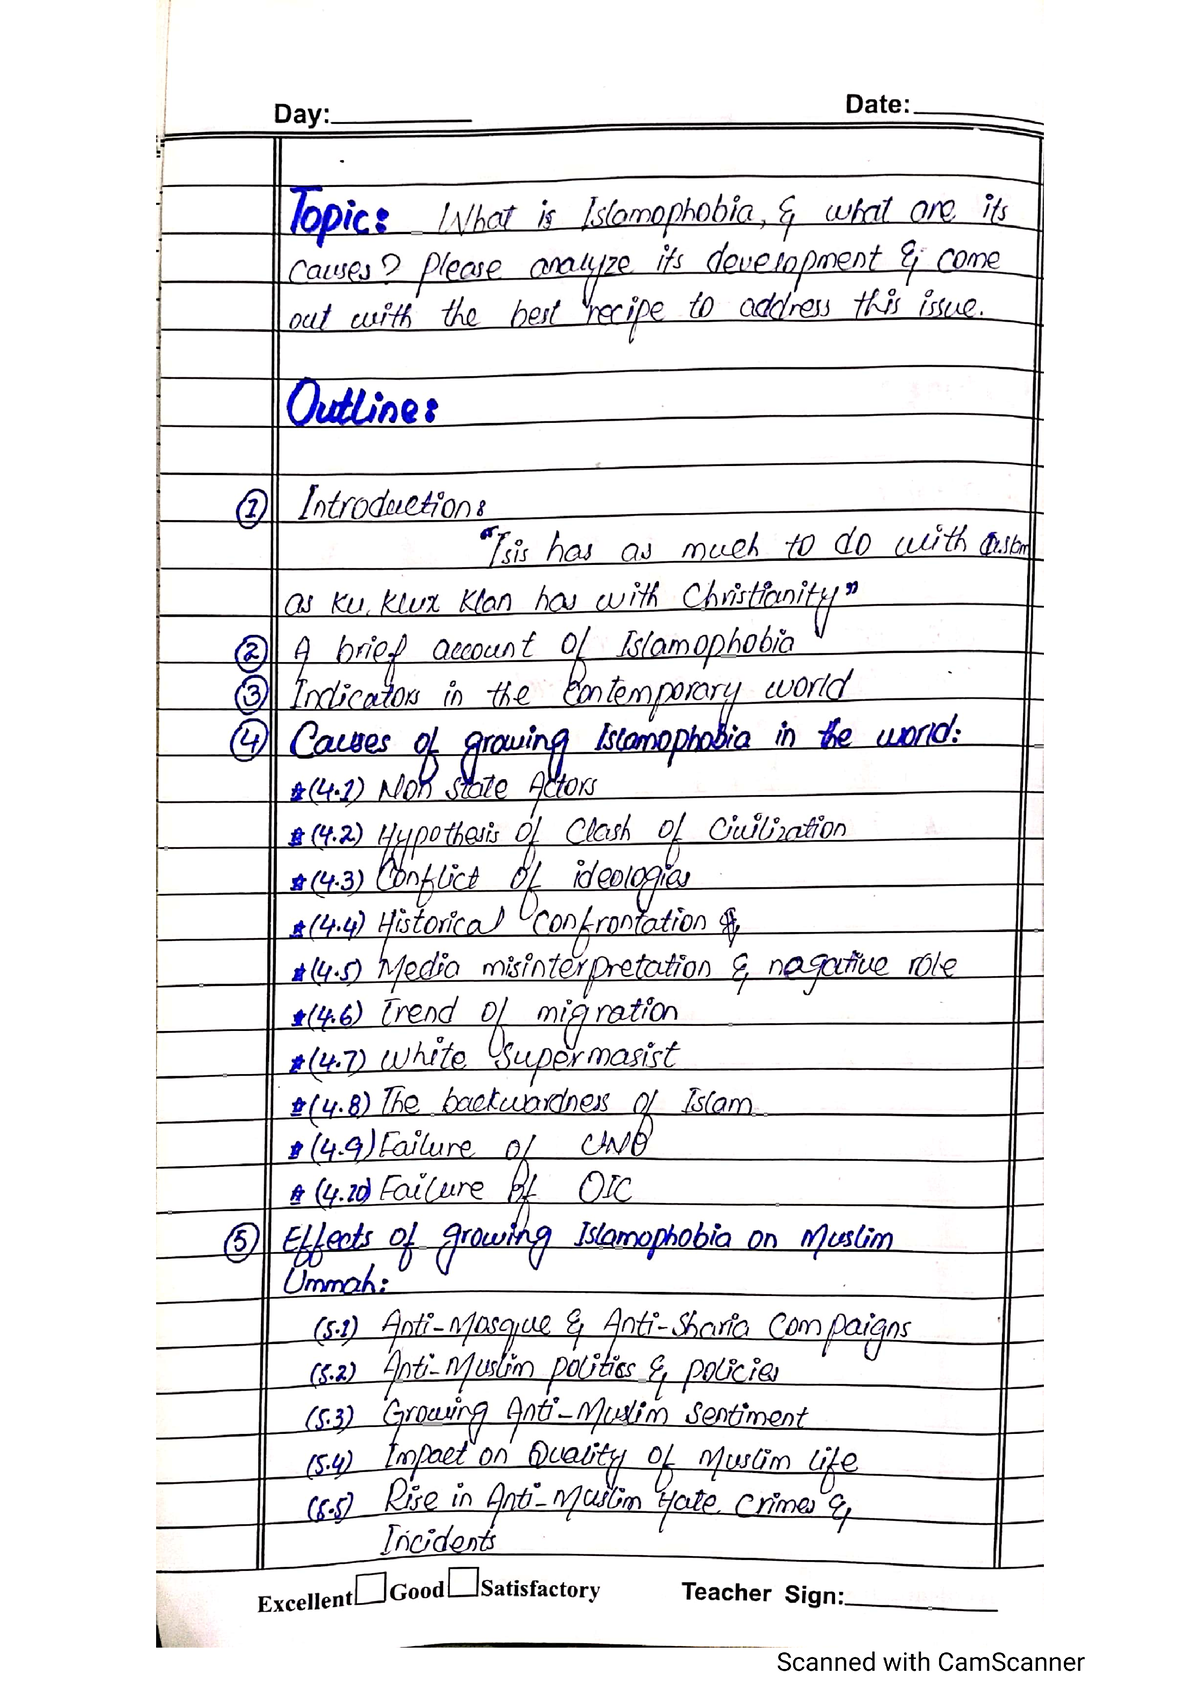 Day:
Date:
Topic: What is Islamophobia, & what are its
causes? Please analyze its development & come
out with the best recipe to address this issue.
Outline:
① Introduction:
"Isis has as much to do with Islam
as Ku, Klux Klan has with Christianity"
② A brief account of Islamophobia
③ Indicators in the contemporary world
④ Causes of growing Islamophobia in the world:
(4.1) Non state Actors
(4.2) Hypothesis of Clash of Civilization
(4.3) Conflict of ideologies
(4.4) Historical Confrontation &
(4.5) Media misinterpretation & nagative role
(4.6) Trend of migration
(4.7) White Supermasist
(4.8) The backwardness of Islam
(4.9) Failure of UNO
(4.10) Failure of OIC
⑤ Effects of growing Islamophobia on Muslim
Ummah:
(5.1) Anti-Mosque & Anti-Sharia Compaigns
(5.2) Anti-Muslim politics & policies
(5.3) Growing Anti-Muslim Sentiment
(5.4) Impact on Quality of Muslim life
(5.5) Rise in Anti-Muslim Hate Crimes &
Incidents
Excellent Good Satisfactory Teacher Sign:
Scanned with CamScanner